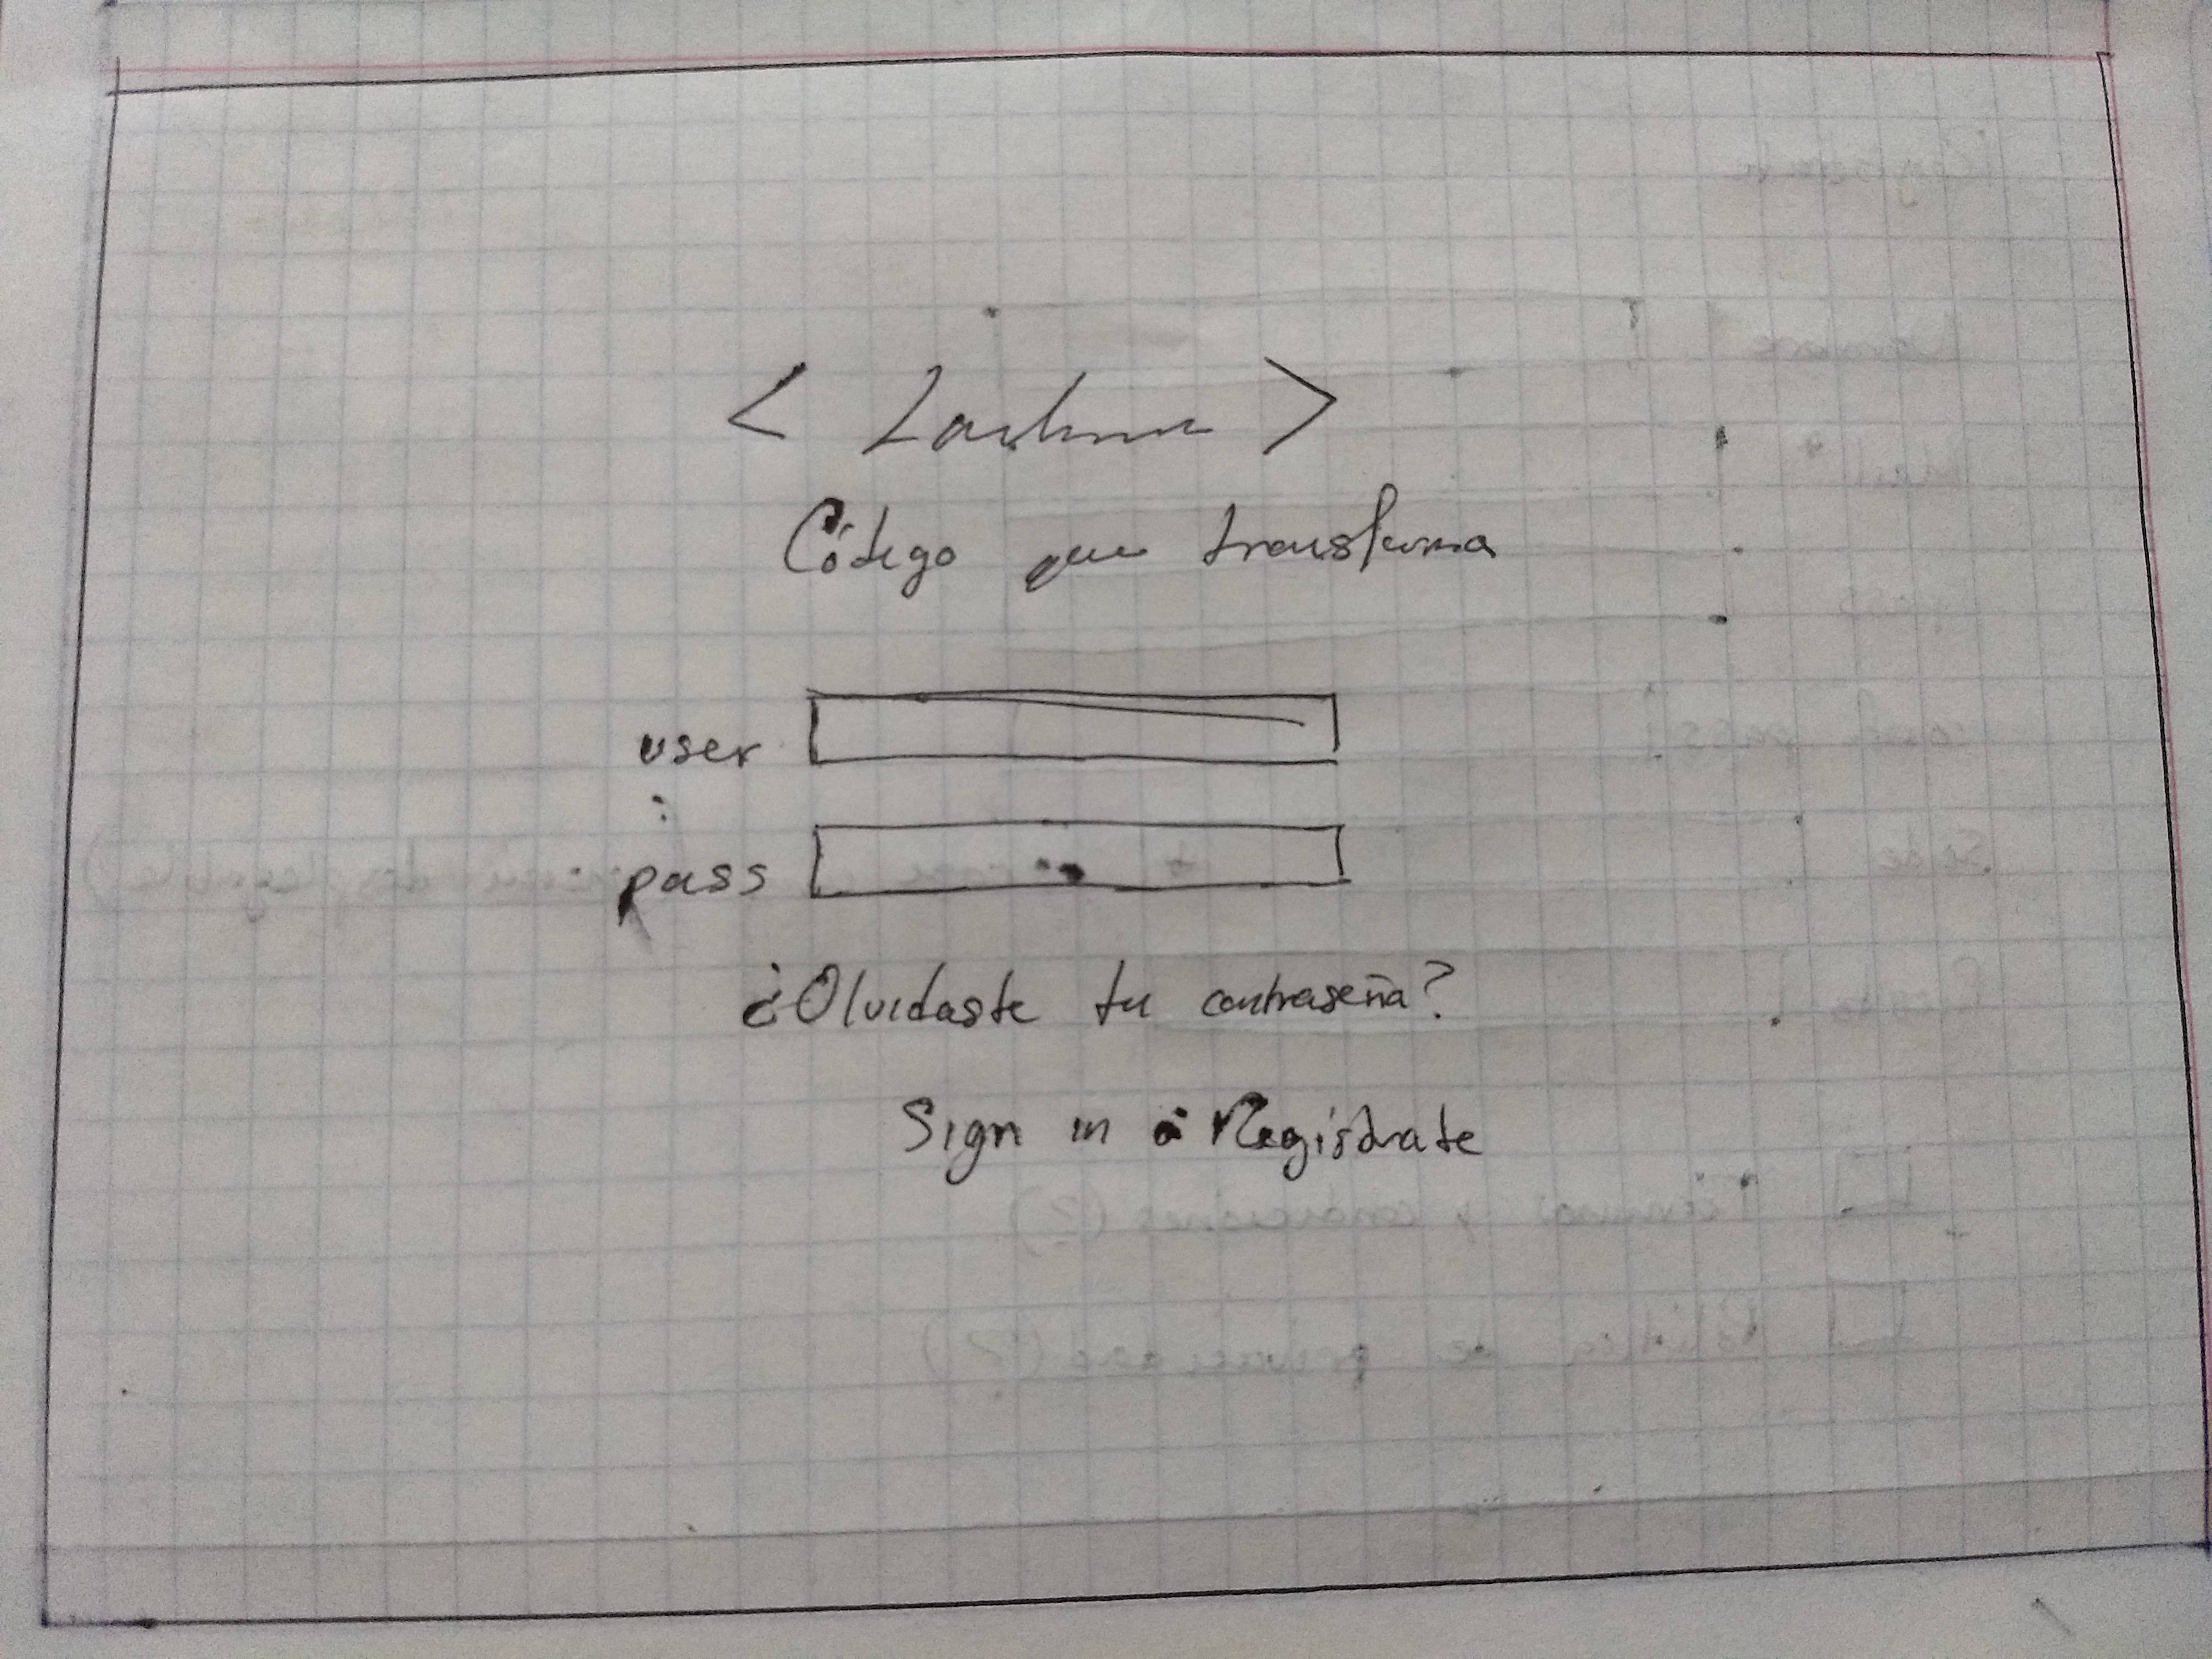 < >
Código que transforma
user
:
pass
¿Olvidaste tu contraseña?
Sign in ó Registrate